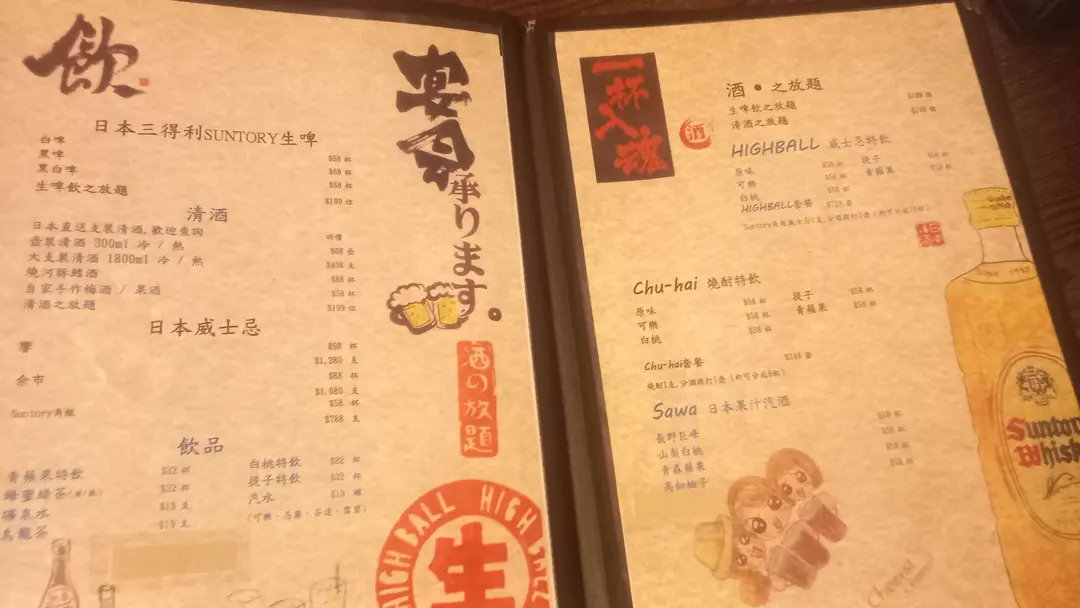 飲
日本三得利SUNTORY生啤
白啤 $58 杯
黑啤 $68 杯
黑白啤 $68 杯
生啤飲之放題 $199 位
清酒
日本直送支裝清酒,歡迎查詢 時價
壺裝清酒 300ml 冷 / 熱 $68 壺
大支裝清酒 1800ml 冷 / 熱 $438 支
燒河豚鰭酒 $88 杯
自家手作梅酒 / 果酒 $58 杯
清酒之放題 $199 位
日本威士忌
響 $98 杯
$1,280 支
余市 $88 杯
$1,080 支
Suntory角瓶 $58 杯
$788 支
飲品
青蘋果特飲 $32 杯
蜂蜜綠茶 $32 杯
礦泉水 $15
烏龍茶 $15
白桃特飲 $32 杯
提子特飲 $32 杯
汽水 $15 罐
宴会承ります。
酒の放題
HIGH BALL HIGH BALL
生
一杯入魂
酒
酒•之放題
生啤飲之放題
清酒之放題
HIGHBALL 威士忌特飲
原味 $58 杯
可樂 $58 杯
白桃 $58 杯
提子 $58 杯
青蘋果 $58 杯
HIGHBALL套餐
Chu-hai 燒酎特飲
原味 $58 杯
可樂 $58 杯
白桃 $58 杯
提子 $58 杯
青蘋果 $58 杯
Chu-hai套餐 $348 套
燒酎1支,分酒跟打1壺 (約可分成8杯)
Sawa 日本果汁汽酒
長野巨峰 $58 杯
山梨白桃 $58 杯
青森蘋果 $58 杯
高知柚子 $58 杯
Cheers!
SINCE 1937
Suntory
Whisky